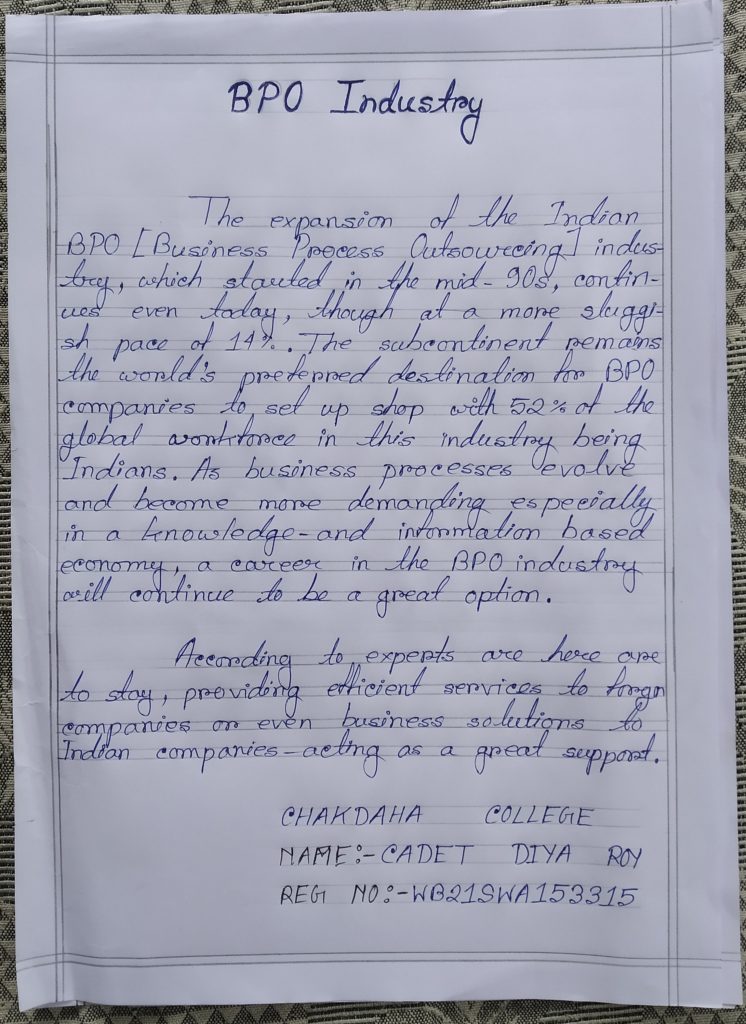 BPO Industry
The expansion of the Indian
BPO [Business Process Outsourcing] indus-
try, which started in the mid-90s, contin-
ues even today, though at a more sluggi-
sh pace of 14%. The subcontinent remains
the world's preferred destination for BPO
companies to set up shop with 52% of the
global workforce in this industry being
Indians. As business processes evolve
and become more demanding especially
in a knowledge-and information based
economy, a career in the BPO industry
will continue to be a great option.
According to experts are here are
to stay, providing efficient services to forgn
companies or even business solutions to
Indian companies-acting as a great support.
CHAKDAHA COLLEGE
NAME:-CADET DIYA ROY
REG NO:-WB21SWA153315